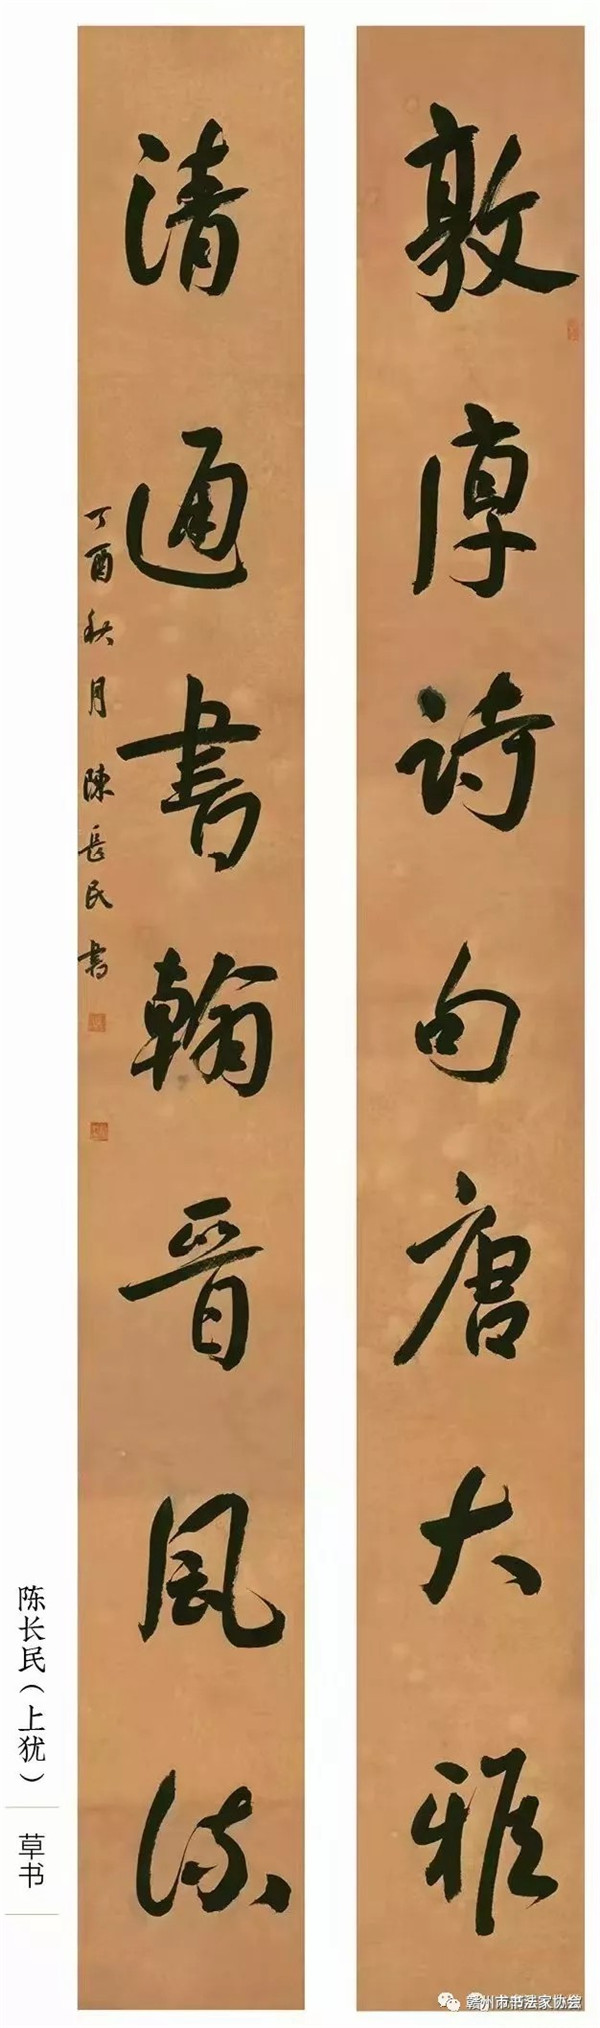 敦厚诗句唐大雅
清通書翰晋風流
丁酉秋月陳長民書
陈长民（上犹）
草书
赣州市书法家协会